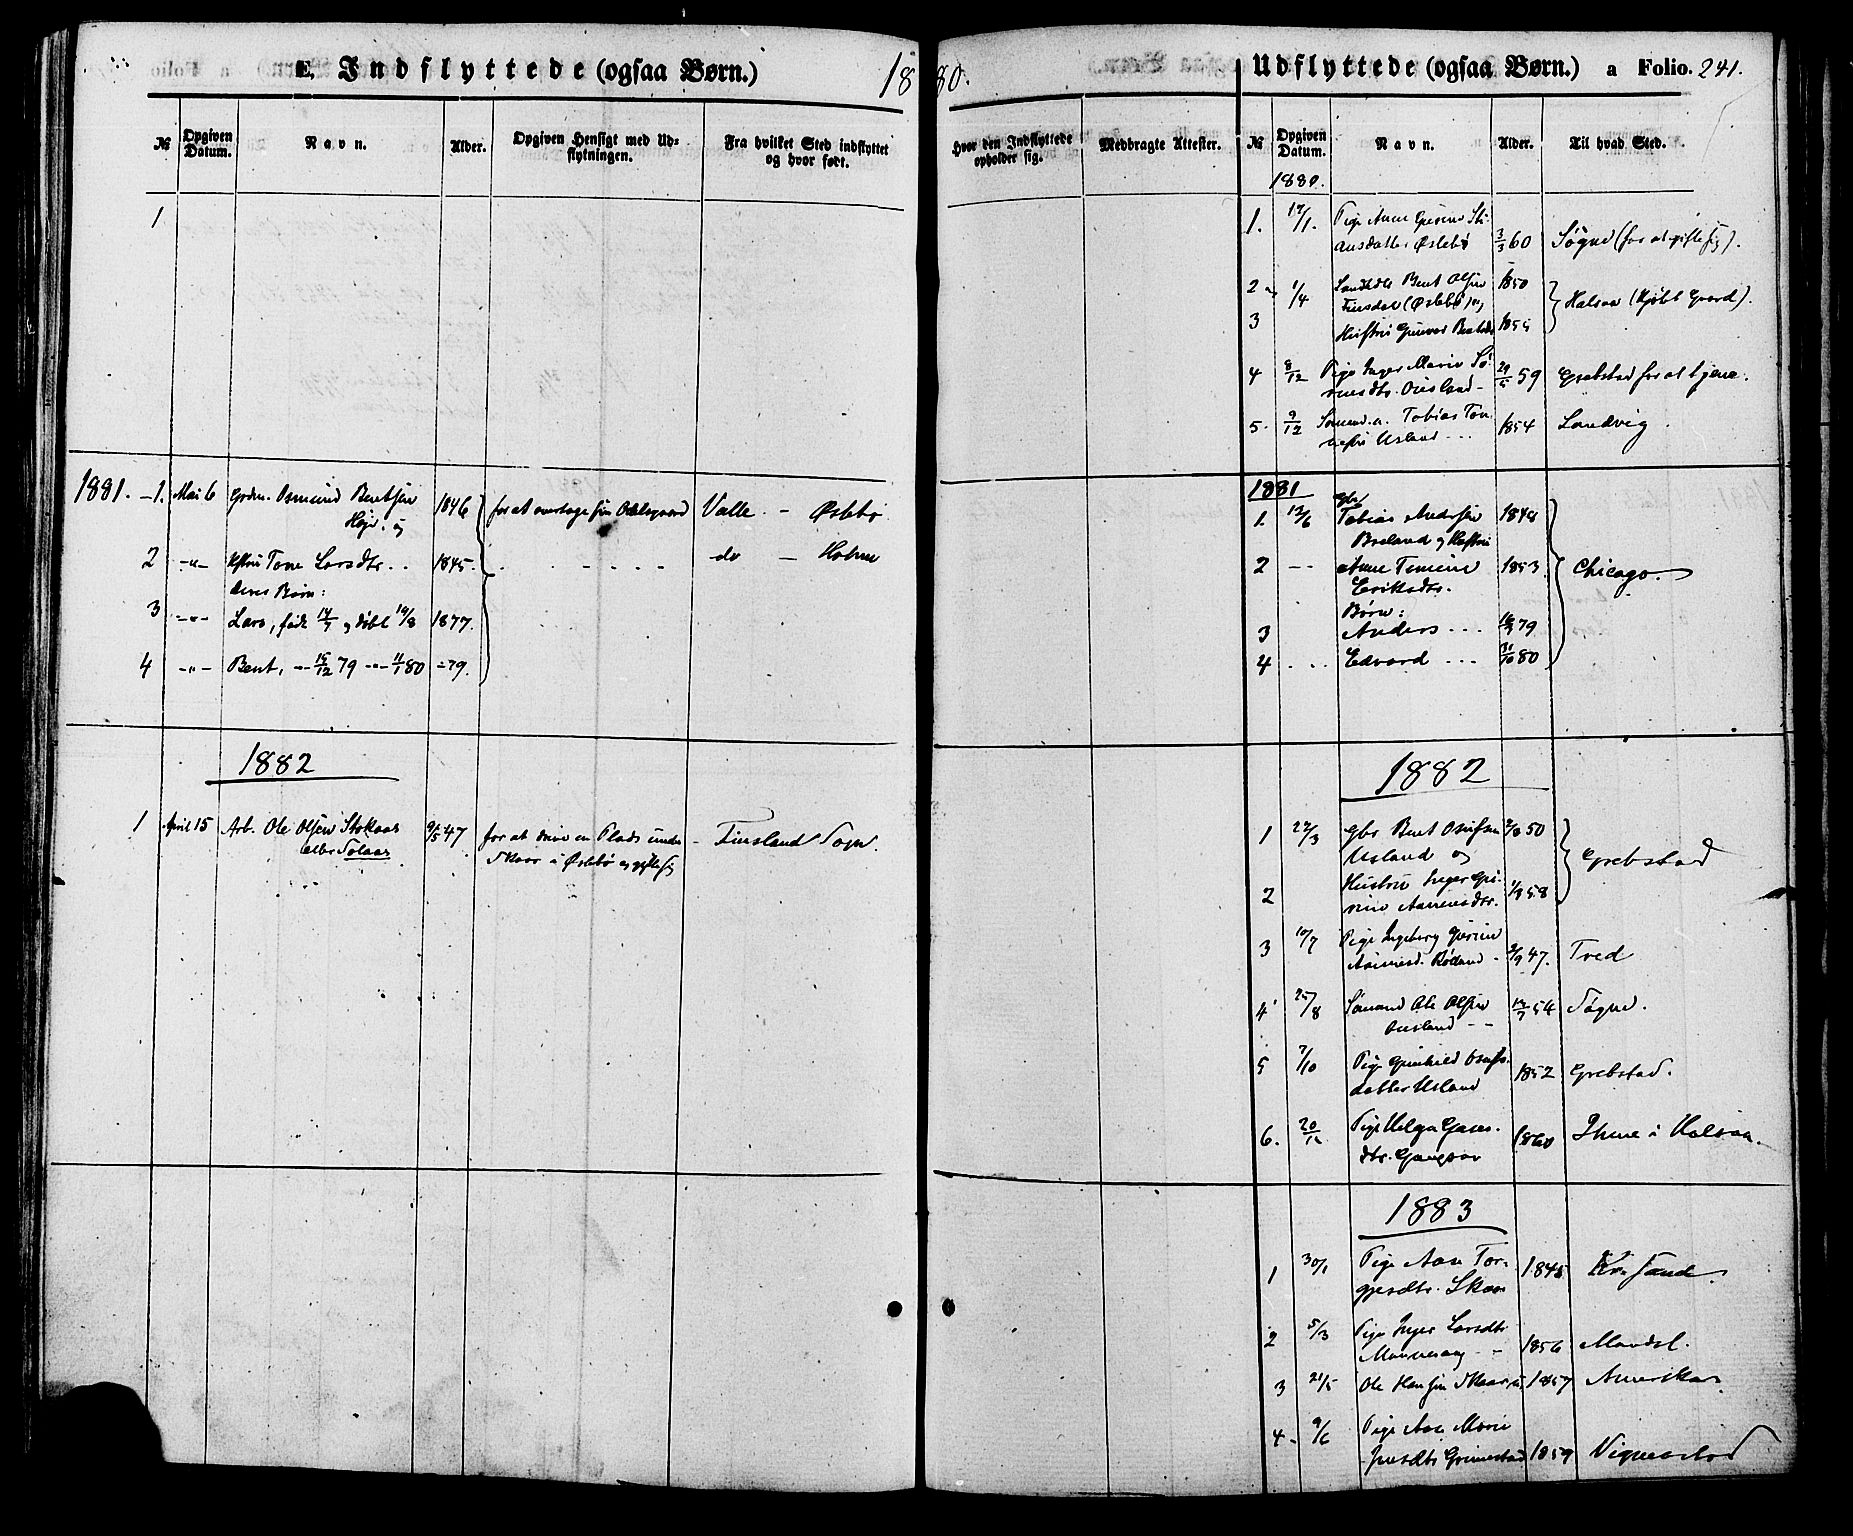 E. Indflyttede (ogsaa Børn.)
1880.
Udflyttede (ogsaa Børn.) a Folio. 241.
№ Opgiven Datum. Navn. Alder. Opgiven Hensigt med Udflytningen. Fra hvilket Sted indflyttet og hvor født. Hvor den Indflyttede opholder sig. Medbragte Attester.
№ Opgiven Datum. Navn. Alder. Til hvad Sted.
1
1881. 1. Mai 6 Grdm. Osmund Bentsen 1846 for at overtage sin Odelsgaard Valle - Øslebø
Høje og
2 -"- Hstru Tone Larsdtr. 1845. do - Holme
deres Børn:
3 -"- Lars, født 14/7 og døbt 19/8 1877.
4 -"- Bent, -"- 15/12 79 -"- 11/1 80 -79.
1882
1 April 15 Arb. Ole Olsen Stokaas 9/5 47 for at drive en Plads under - Finsland Sogn.
eller Solaas Skaar i Øslebø og gifte sig
1880.
1. 17/1. Pige Anne
Øslebø 3/3 60 Søgne (for at gifte sig).
2 1/4 Bent Olsen 1850
(Øslebø) og Halsaa (kjøbt Gaard).
3 Hustru Gunvor
4 8/12 Pige Inger Marie Sø-
rensdtr. Ousland - 29/5 59 Grebstad for at tjene.
5. 9/12 Sømand. Tobias Tøn-
nesen Usland --- 1854 Landvig.
1881
Gbr
1. 13/6 Tobias Andersen 1848
Breland og Hustru
2 -- Anne Tomine 1853. Chicago.
Eriksdtr.
Børn:
3 Anders ... 79
4 ... Edvard ... 31/10 80
1882
1 27/3 Gbr Bent Osufsen 50
Usland og Grebstad
2 Hustru Inger
Aanensdtr. 58
3 10/7 Pige Ingeborg
47. Tred
4 25/8 Sømand Ole Olsen 54 Søgne.
Ousland --
5 7/10 Pige Gunhild Osufs-
datter Usland 1852 Grebstad.
6. 20/12 Pige Helga
1860 i Halsaa.
1883
1 30/1 Pige Aase Tor-
gjersdtr. Skaar 1845 Kr.sand.
2 5/3 Pige Inger Larsdtr
1856 Mandal.
3 21/5 Ole Hansen Skaar 1857 Amerika
4 - 9/6 Pige Aase Marie
Jensdtr Grimestad 1859 Vigmostad